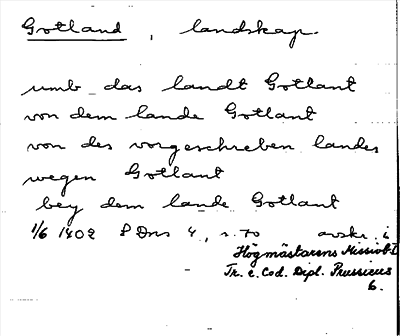 Gotland, landskap.
umb das landt Gotlant
von dem lande Gotlant
von des vorgeschreben landes
wegen Gotlant
bey dem lande Gotlant
1/6 1402 SDns 4, s. 70 avskr. i
Högmästarens Missiv I
Tr. i Cod. Dipl. Prussicus
6.